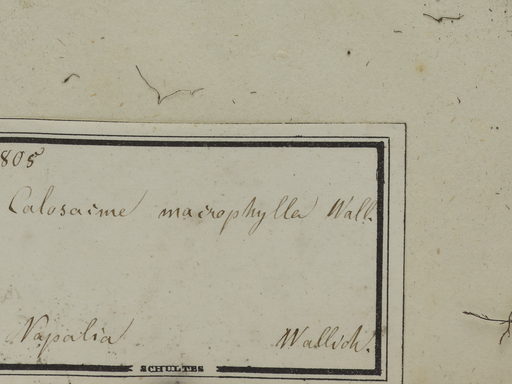 805
Calosacme macrophylla Wall.
Napalia Wallich.
SCHULTES